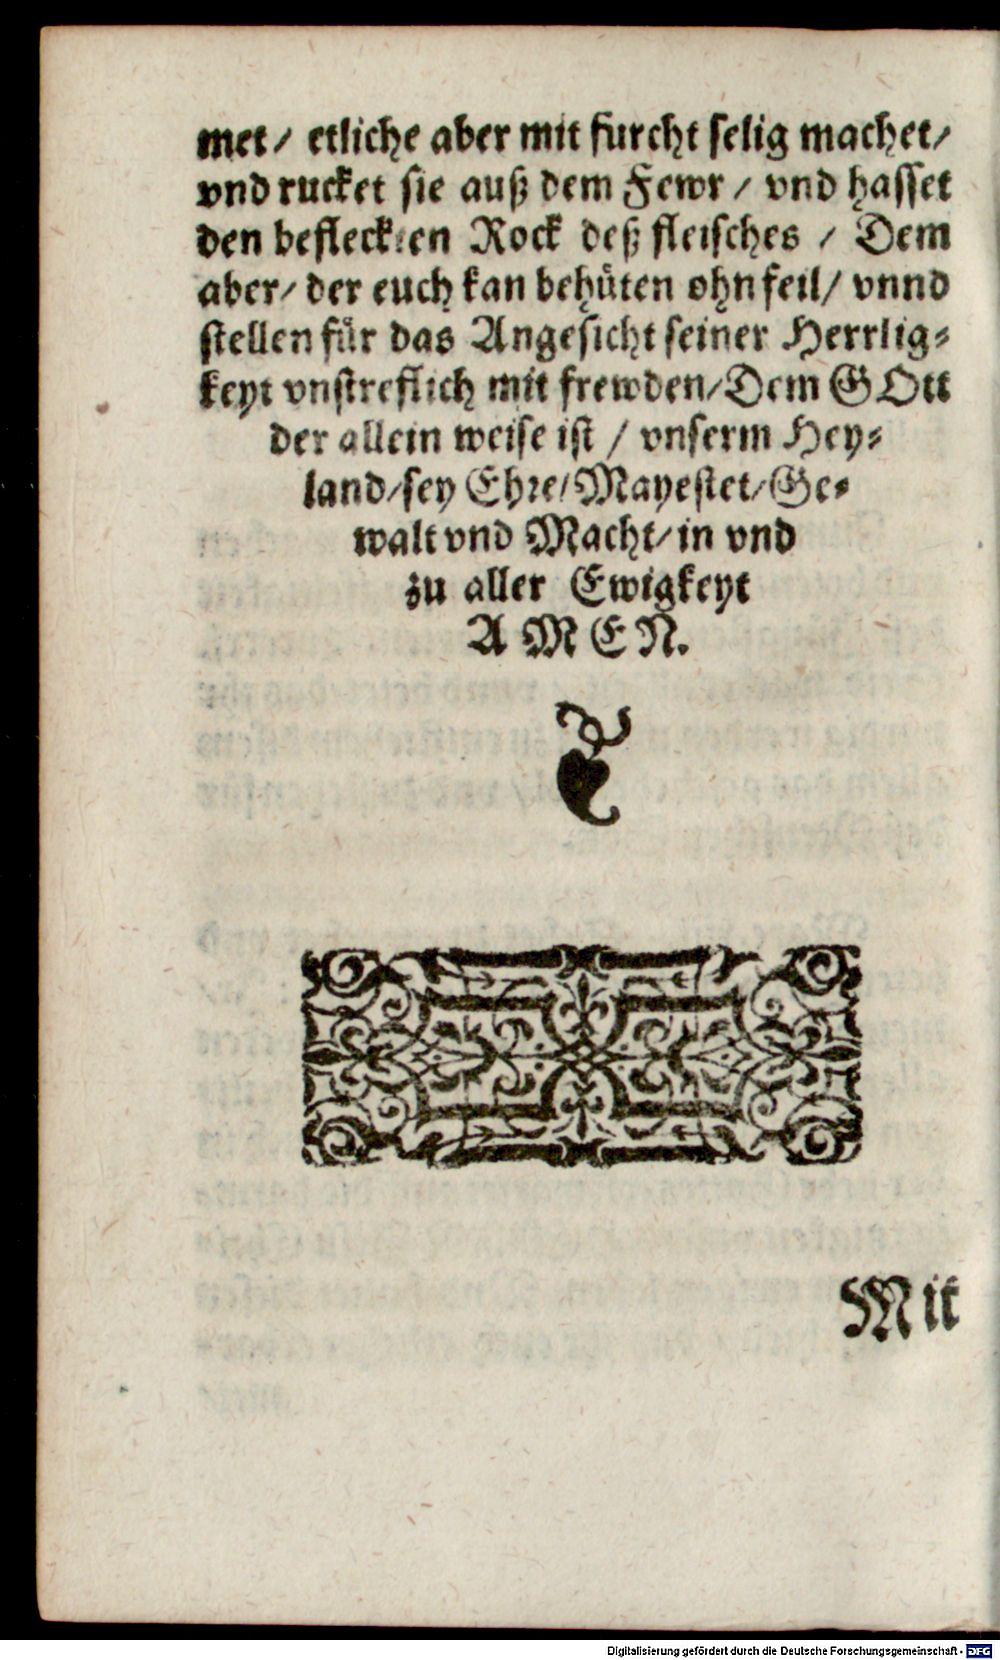 met/ etliche aber mit furcht selig machet/
vnd rucket sie auß dem Fewr / vnd hasset
den befleckten Rock deß fleisches / Dem
aber/ der euch kan behüten ohn feil/ vnnd
stellen für das Angesicht seiner Herrlig⸗
keyt vnstreflich mit frewden/ Dem GOtt
der allein weise ist / vnserm Hey⸗
land/ sey Ehre/ Mayestet/ Ge⸗
walt vnd Macht/ in vnd
zu aller Ewigkeyt
AMEN.
Mit
Digitalisierung gefördert durch die Deutsche Forschungsgemeinschaft - DFG